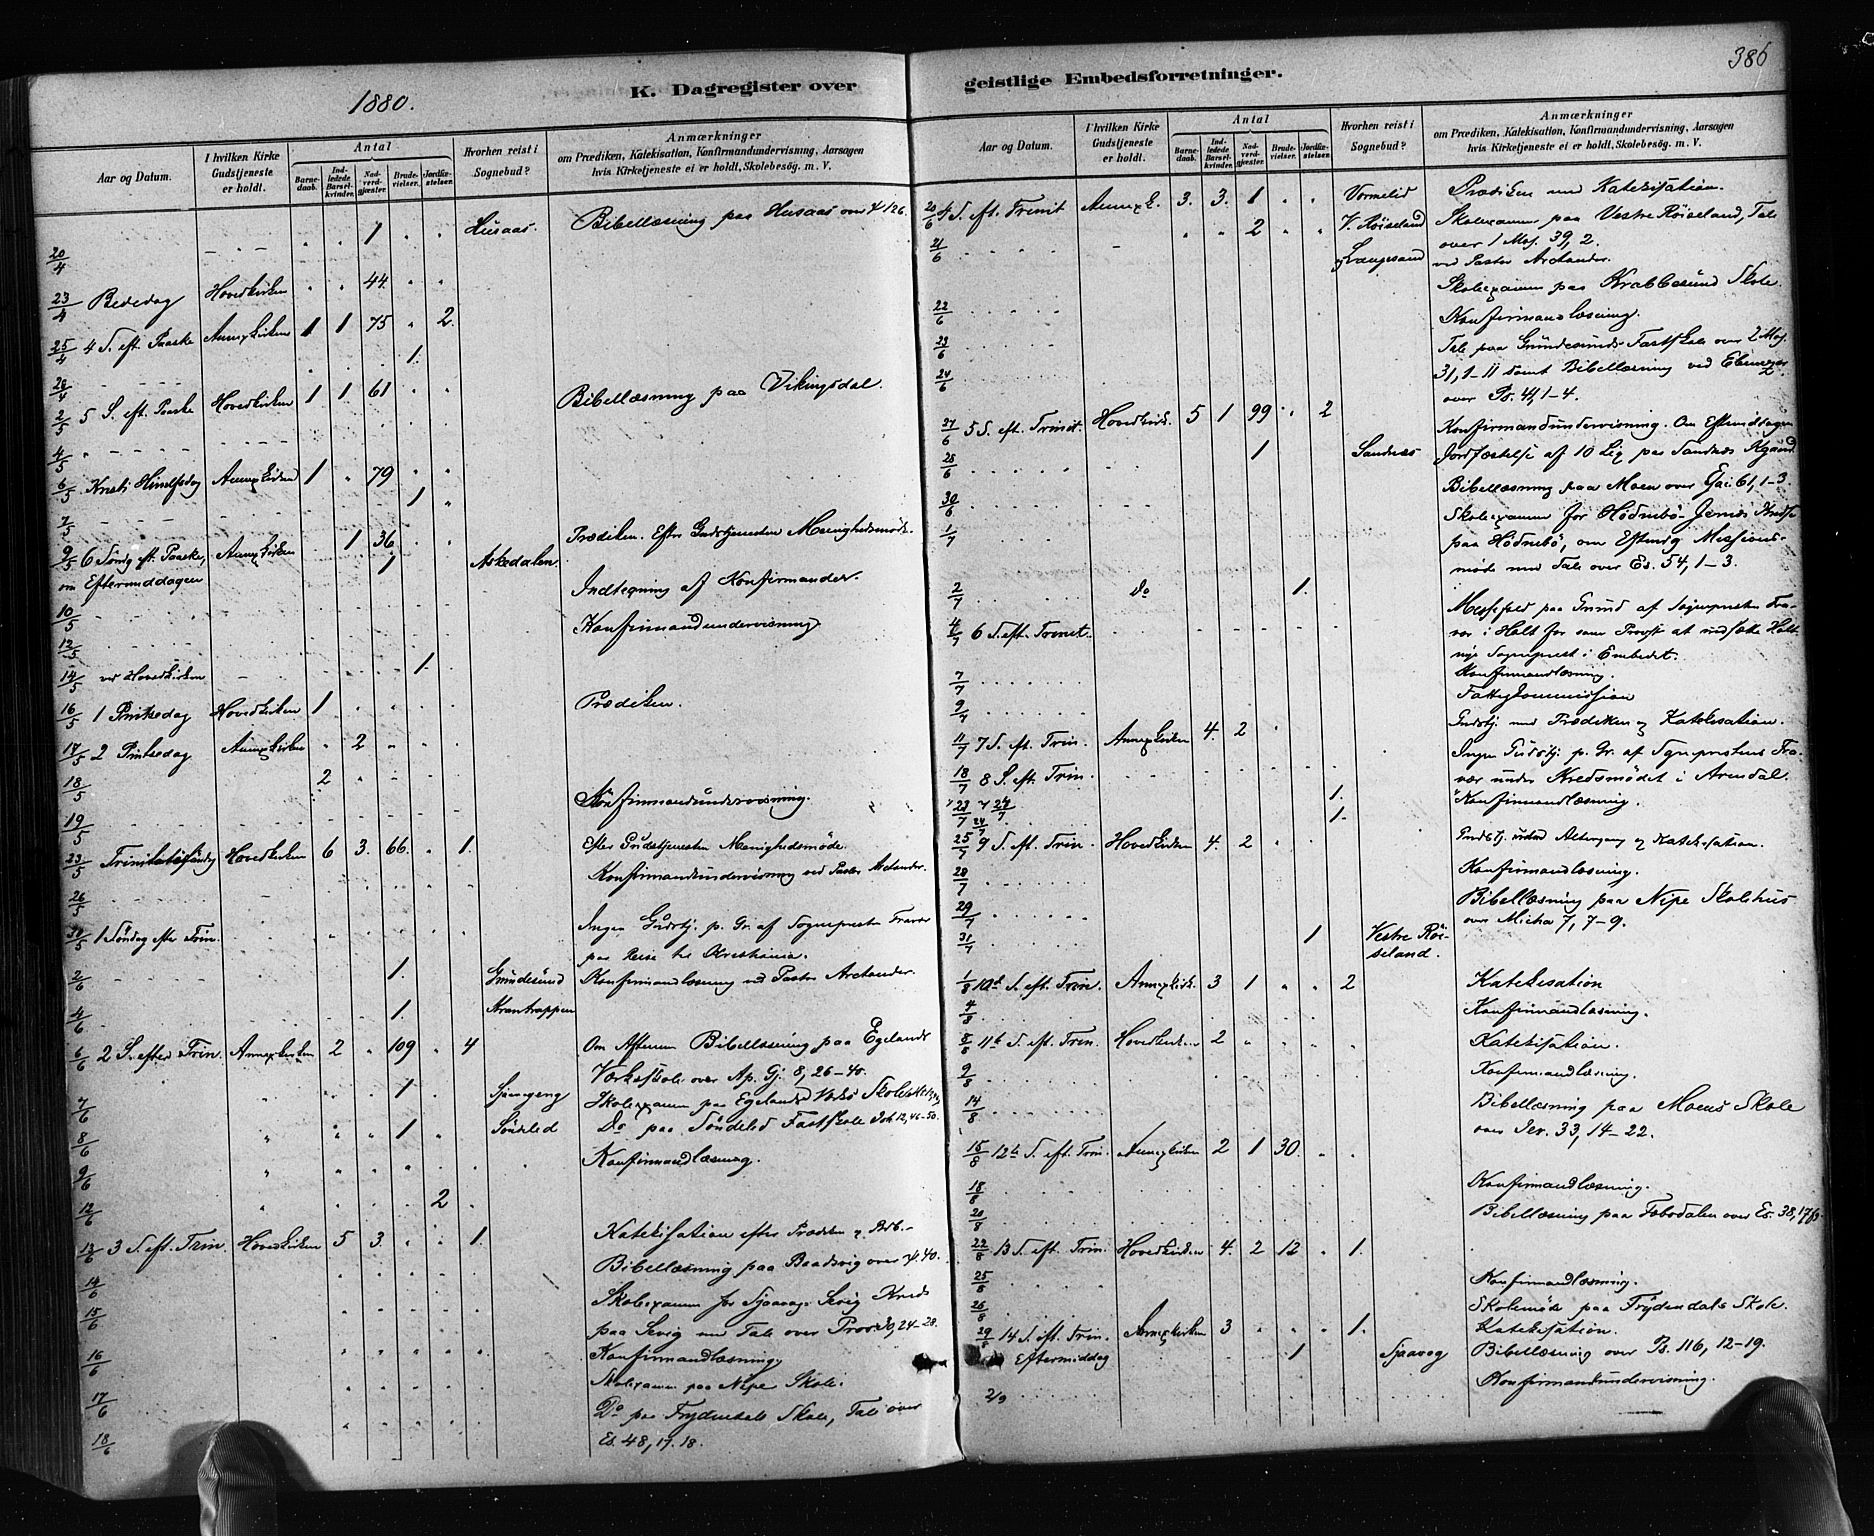 386
1880.
K. Dagregister over
geistlige Embedsforretninger.
Aar og Datum.
I hvilken Kirke Gudstjeneste er holdt.
Antal
Barnedaab.
Indledede Barselkvinder.
Nadverdgjester.
Brudevielser.
Jordfæstelser.
Hvorhen reist i Sognebud?
Anmærkninger
om Prædiken, Katekisation, Konfirmandundervisning, Aarsagen
hvis Kirketjeneste ei er holdt, Skolebesög. m. V.
20/4 1 Husaas. Bibellæsning paa Husaas over ψ 126.
23/4 Bededag Hovedkirken 44
25/4 4 S. eft. Paaske Annexkirken 1 1 75 2.
28/4 1.
2/5 5 S. eft. Paaske Hovedkirken 1 1 61
4/5 Bibellæsning paa Vikingsdal.
6/5 Kristi Himelfsdag Annexkirken 1 79
7/5 1
9/5 6 Söndg eft. Paaske, Annexkirken 1 36 Prædiken. Efter Gudstjenesten Menighedsmöde.
om Eftermiddagen 1 Askedalen.
10/5 Indtegning af Konfirmander.
12/5 Konfirmandundervisning
14/5 ved Hovedkirken 1.
16/5 1 Pintsedag Hovedkirken 1 Prædiken.
17/5 2 Pintsedag Annexkirken 2
18/5 2
19/5 Konfirmandundervisning.
23/5 Trinitatissöndag Hovedkirken 6 3. 66. 1. Efter Gudstjenesten Menighedsmöde.
26/5 Konfirmandundervisning ved Pastor Archander.
30/5 1 Söndag efter Trin. Ingen Gudstj. p. Gr. af Sogneprestens Fravær
paa Reise til Kristiania.
2/6 1. Grundesund Konfirmandlæsning ved Pastor Archander.
4/6 1. Strantrappen
6/6 2 S. efter Trin. Annexkirken 2 109 4 Om Aftenen Bibellæsning paa Egelands
Værkskole over Ap. Gj. 8, 26-40.
7/6 1 Skolexamen paa Egelands Værks Skole
8/6 1 Söndeled Do paa Söndeled Fastskole Joh 12, 46-50.
9/6 Konfirmandlæsning.
12/6 2
13/6 3 S. eft. Trin. Hovedkirken 5 3. 1. Katekisation efter Prædiken
14/6 Bibellæsning paa Baadsvig over ψ. 40.
15/6 Skolexamen for Sjaavag Sevig Kreds
paa Sevig med Tale over 24-28.
16/6 Konfirmandlæsning
17/6 Skolexamen paa Nipe Skole.
18/6 Do paa Frydendals Skole, Tale over
Es. 48, 17. 18.
Aar og Datum.
I hvilken Kirke Gudstjeneste er holdt.
Antal
Barnedaab.
Indledede Barselkvinder.
Nadverdgjester.
Brudevielser.
Jordfæstelser.
Hvorhen reist i Sognebud?
Anmærkninger
om Prædiken, Katekisation, Konfirmandundervisning, Aarsagen
hvis Kirketjeneste ei er holdt, Skolebesög. m. V.
20/6 4 S. eft. Trinit Annexk. 3. 3. 1 Vormelid Prædiken med Katekisation.
21/6 2 V. Röiseland Skolexamen paa Vestre Röiseland, Tale
over 1 Mos. 39, 2.
Langesand ved Pastor Archander.
22/6 Skolexamen paa Krabbesund Skole.
23/6 Konfirmandlæsning.
24/6 Tale paa Grundesunds Fastskole over 2 Mos.
31, 1-11 samt Bibellæsning ved Ebenezer
over Ps. 41, 1-4.
27/6 5 S. eft. Trinit. Hovedkirk. 5 1 99 2
28/6 1 Sandnæs Konfirmandundervisning. Om Eftermiddagen
Jordfæstelse af 10 Lig paa Sandnæs Kgaard
30/6 Bibellæsning paa Moen over Esai. 61, 1-3.
1/7 Skolexamen for Hödnebö Kreds
paa Hödnebö, om Eftmdg Missionsmöde
med Tale over Es. 54, 1-3.
2/7 Do 1.
4/7 6 S. eft. Trinit. Messefald paa Grund af Sogneprestens Fravær
i Holt for som Provst at indsætte Holts
nye Sogneprest i Embedet.
7/7 Konfirmandlæsning.
9/7 Fattigkommission
11/7 7 S. eft. Trin. Annexkirken 4. 2 Gudstj. med Prædiken og Katekisation.
18/7 8 S. eft. Trin. Ingen Gudstj. p. Gr. af Sogneprestens Fravær
under Kredsmödet i Arendal.
1. Konfirmandlæsning.
24/7 1.
25/7 9 S. eft. Trin. Hovedkirken 4. 2 Gudstj. uden Altergang og Katekisation.
28/7 Konfirmandlæsning.
29/7 Bibellæsning paa Nipe Skolehus
over Micha 7, 7-9.
31/7 1 Vestre Röiseland.
1/8 10de S. eft. Trin. Annexkirk. 3 1 2 Katekisation
4/8 Konfirmandlæsning.
8/8 11te S. eft. Trin. Hovedkirken 2 Katekisation.
9/8 Konfirmandlæsning.
14/8 Bibellæsning paa Moens Skole
over Jer. 33, 14-22.
15/8 12te S. eft. Trin. Annexkirken 2 1 30.
18/8 Konfirmandlæsning.
20/8 Bibellæsning paa Fæbodalen over Es. 38, 17
22/8 13 S. eft. Trin. Hovedkirken 4. 2 12 1.
25/8 Konfirmandlæsning.
26/8 Skolemöde paa Frydendals Skole.
29/8 14 S. eft. Trin. Annexkirken 3 1. Katekisation.
Eftermiddag 1 Sjaavag Bibellæsning over Ps. 116, 12-19.
2/9 Konfirmandundervisning.